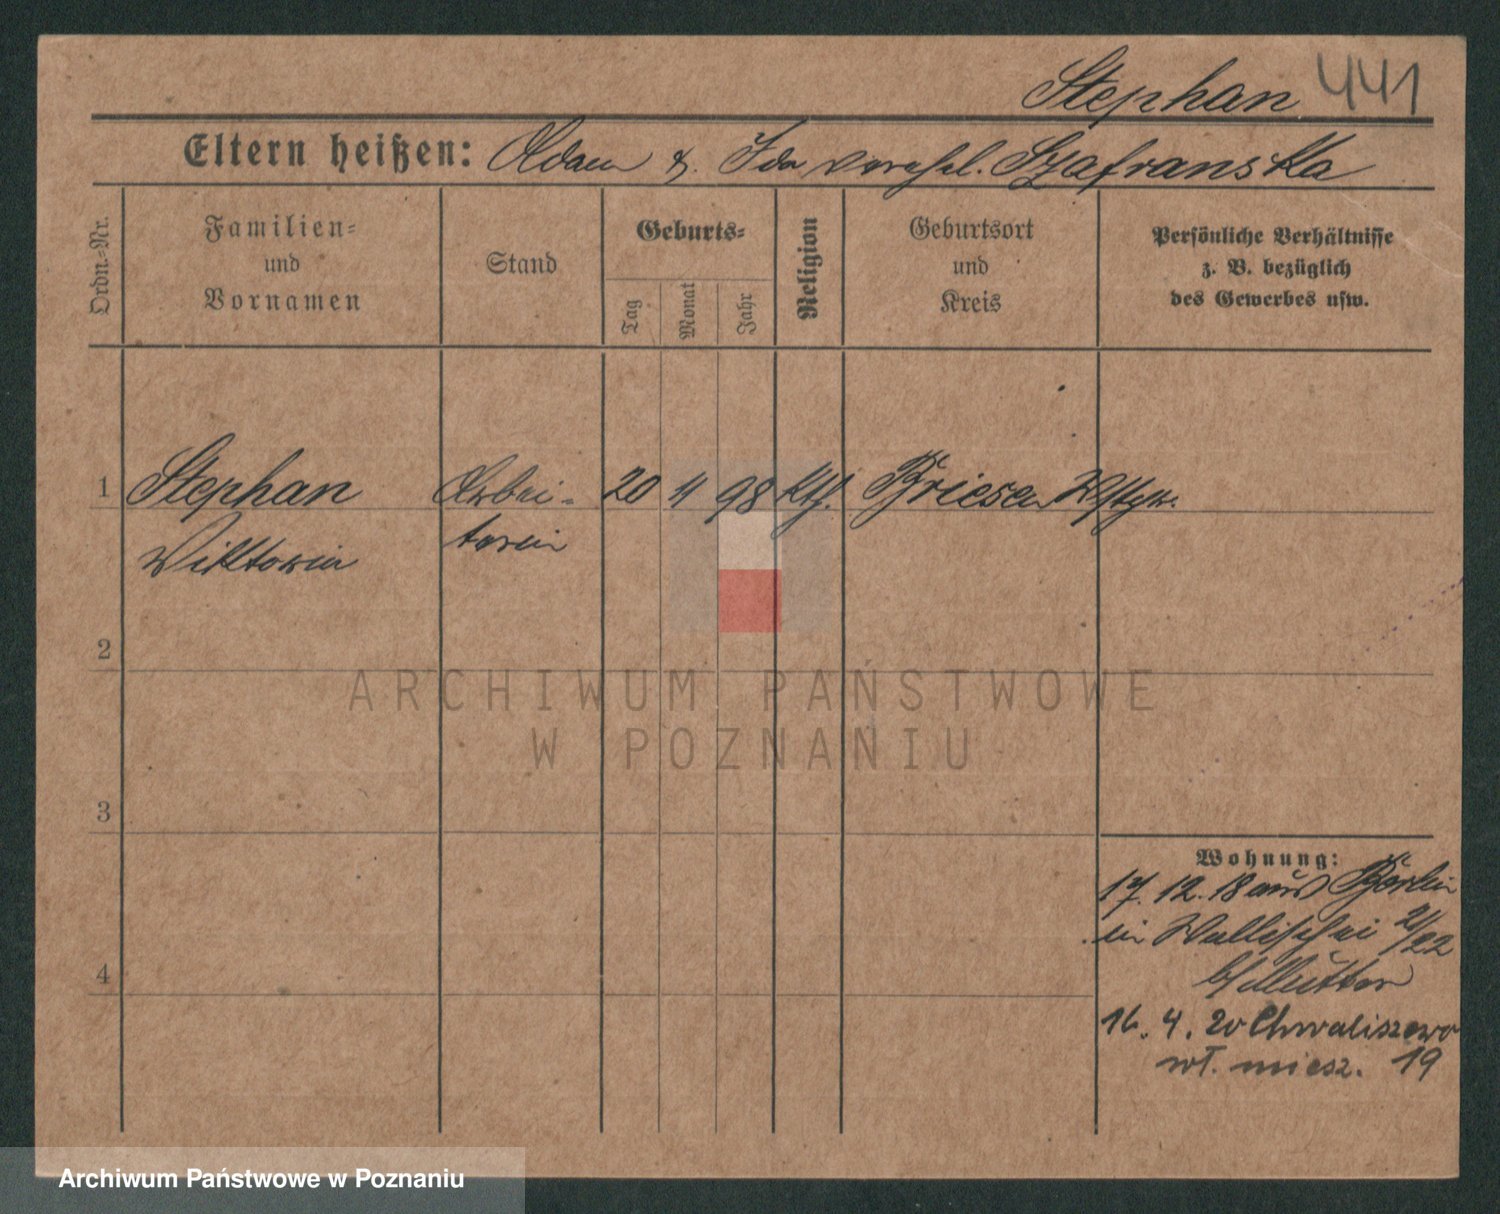 Stephan 441
Eltern heißen: Adam & Ida verehel. Szafranska
Ordn.-Nr.
Familien-
und
Vornamen
Stand
Geburts-
Tag
Monat
Jahr
Religion
Geburtsort
und
Kreis
Persönliche Verhältnisse
z. B. bezüglich
des Gewerbes usw.
1 Stephan Arbei- 20 4 98 kth. Briesen Wstpr.
Wiktoria terin
2
ARCHIWUM PAŃSTWOWE
W POZNANIU
3
Wohnung:
17.12.18 aus Berlin
in Wallischei 21/22
b/ Mutter
4
16. 4. 20 Chwaliszewo
wł. miesz. 19
Archiwum Państwowe w Poznaniu